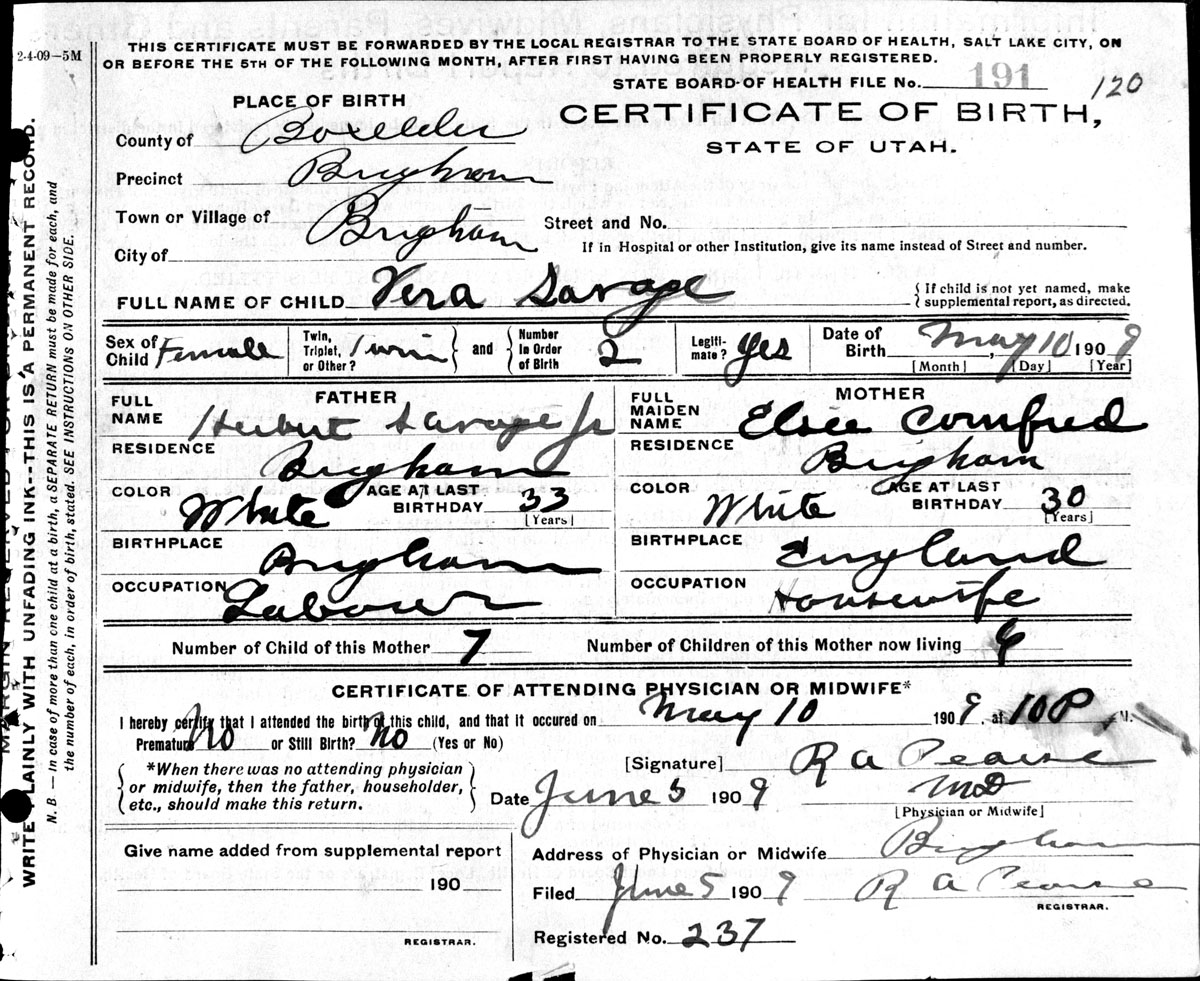 2-4-09—5M
THIS CERTIFICATE MUST BE FORWARDED BY THE LOCAL REGISTRAR TO THE STATE BOARD OF HEALTH, SALT LAKE CITY, ON
OR BEFORE THE 5TH OF THE FOLLOWING MONTH, AFTER FIRST HAVING BEEN PROPERLY REGISTERED.
STATE BOARD OF HEALTH FILE No. 191 120
PLACE OF BIRTH
CERTIFICATE OF BIRTH,
STATE OF UTAH.
County of Boxelder
Precinct Brigham
Town or Village of Brigham
Street and No.
City of
If in Hospital or other Institution, give its name instead of Street and number.
FULL NAME OF CHILD Vera Savage
{ If child is not yet named, make
supplemental report, as directed.
Sex of Child Female Twin, Triplet, or Other? Twin } and { Number in Order of Birth 2 Legiti-mate? Yes Date of Birth May 10 1909
[Month] [Day] [Year]
FATHER
MOTHER
FULL NAME Herbert Savage Jr
FULL MAIDEN NAME Elsie Cornfred
RESIDENCE Brigham
RESIDENCE Brigham
COLOR White AGE AT LAST BIRTHDAY 33 [Years]
COLOR White AGE AT LAST BIRTHDAY 30 [Years]
BIRTHPLACE Brigham
BIRTHPLACE England
OCCUPATION Laborer
OCCUPATION Housewife
Number of Child of this Mother 7
Number of Children of this Mother now living 6
CERTIFICATE OF ATTENDING PHYSICIAN OR MIDWIFE*
I hereby certify that I attended the birth of this child, and that it occured on May 10 1909, at 10 P. M.
Premature No or Still Birth? No (Yes or No)
*When there was no attending physician
or midwife, then the father, householder,
etc., should make this return.
[Signature] R A Pearse
Date June 5 1909
MD
[Physician or Midwife]
Give name added from supplemental report
190
REGISTRAR.
Address of Physician or Midwife Brigham
Filed June 5 1909 R A Pearse
REGISTRAR.
Registered No. 237
WRITE PLAINLY WITH UNFADING INK--THIS IS A PERMANENT RECORD.
N. B. — In case of more than one child at a birth, a SEPARATE RETURN must be made for each, and
the number of each, in order of birth, stated. SEE INSTRUCTIONS ON OTHER SIDE.